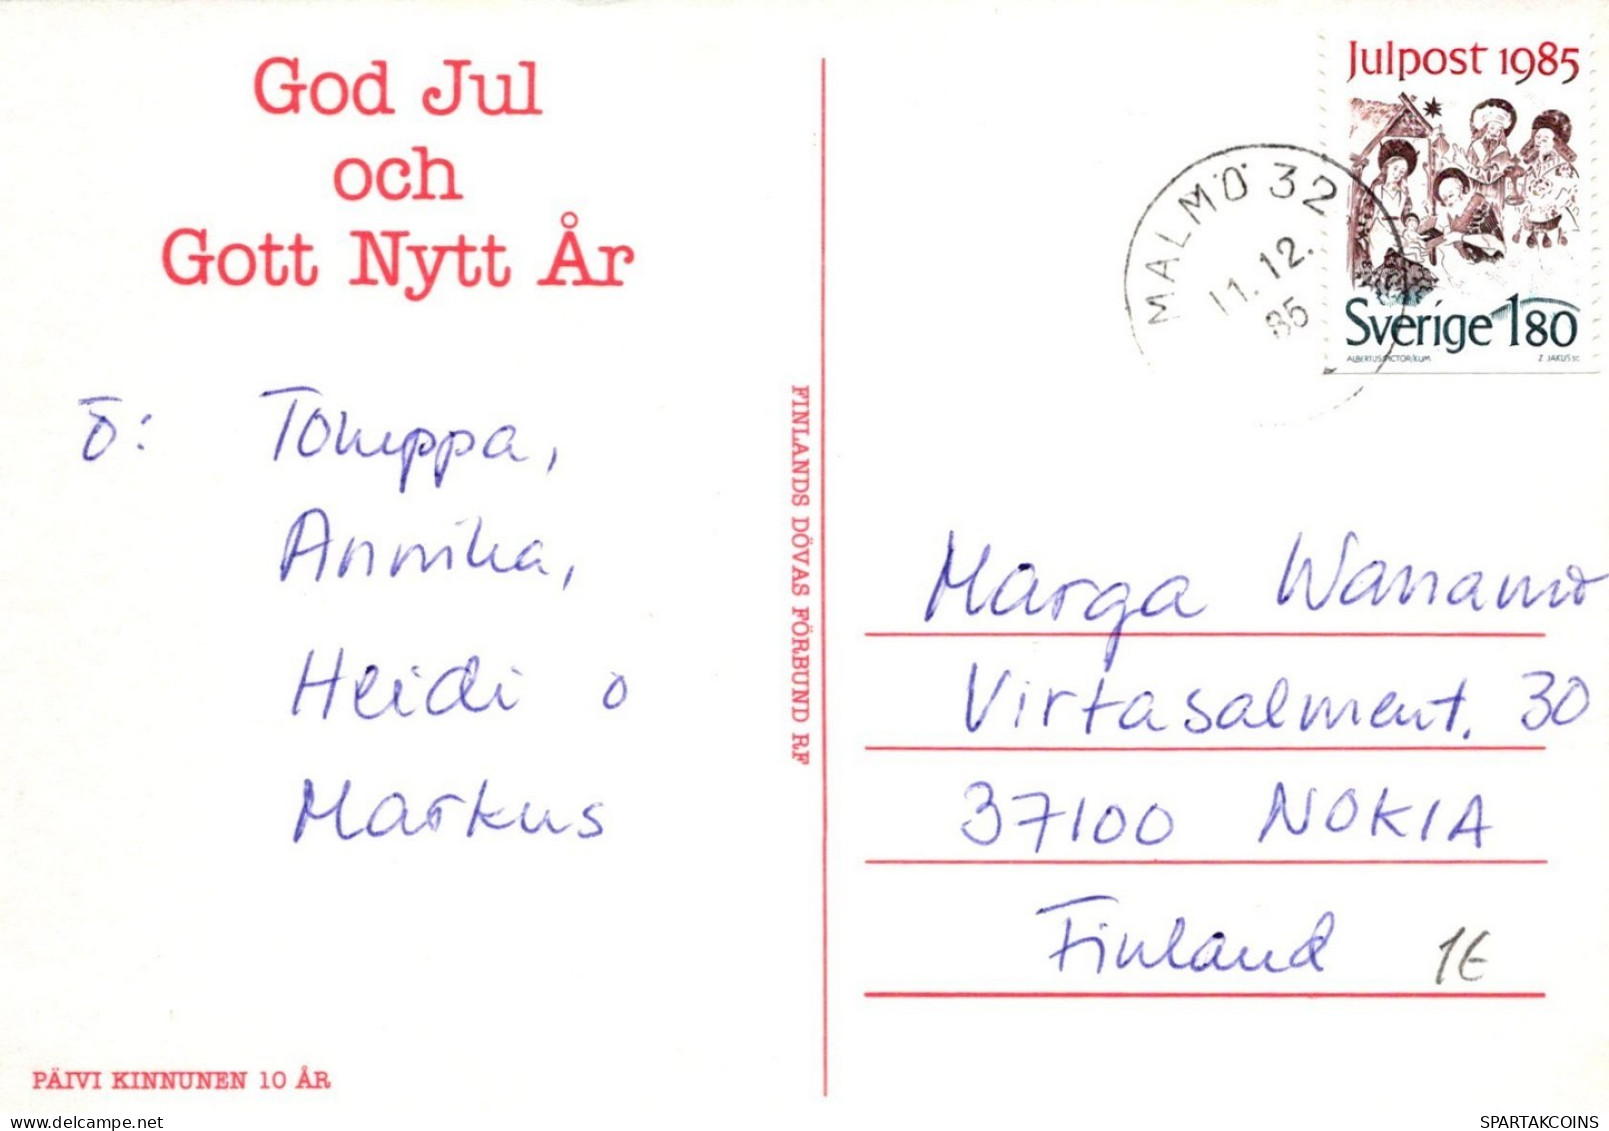 God Jul
och
Gott Nytt År
Annika,
Heidi o
Markus
PÄIVI KINNUNEN 10 ÅR
FINLANDS DÖVAS FÖRBUND RF
Julpost 1985
Sverige 180
ALBERTUS PICTOR/KUM Z JAKUS SC
MALMÖ 32
11.12.
85
Marga Wanamo
Virtasalment. 30
37100 NOKIA
Finland 1€
SPARTAKCOINS
delcampe.net